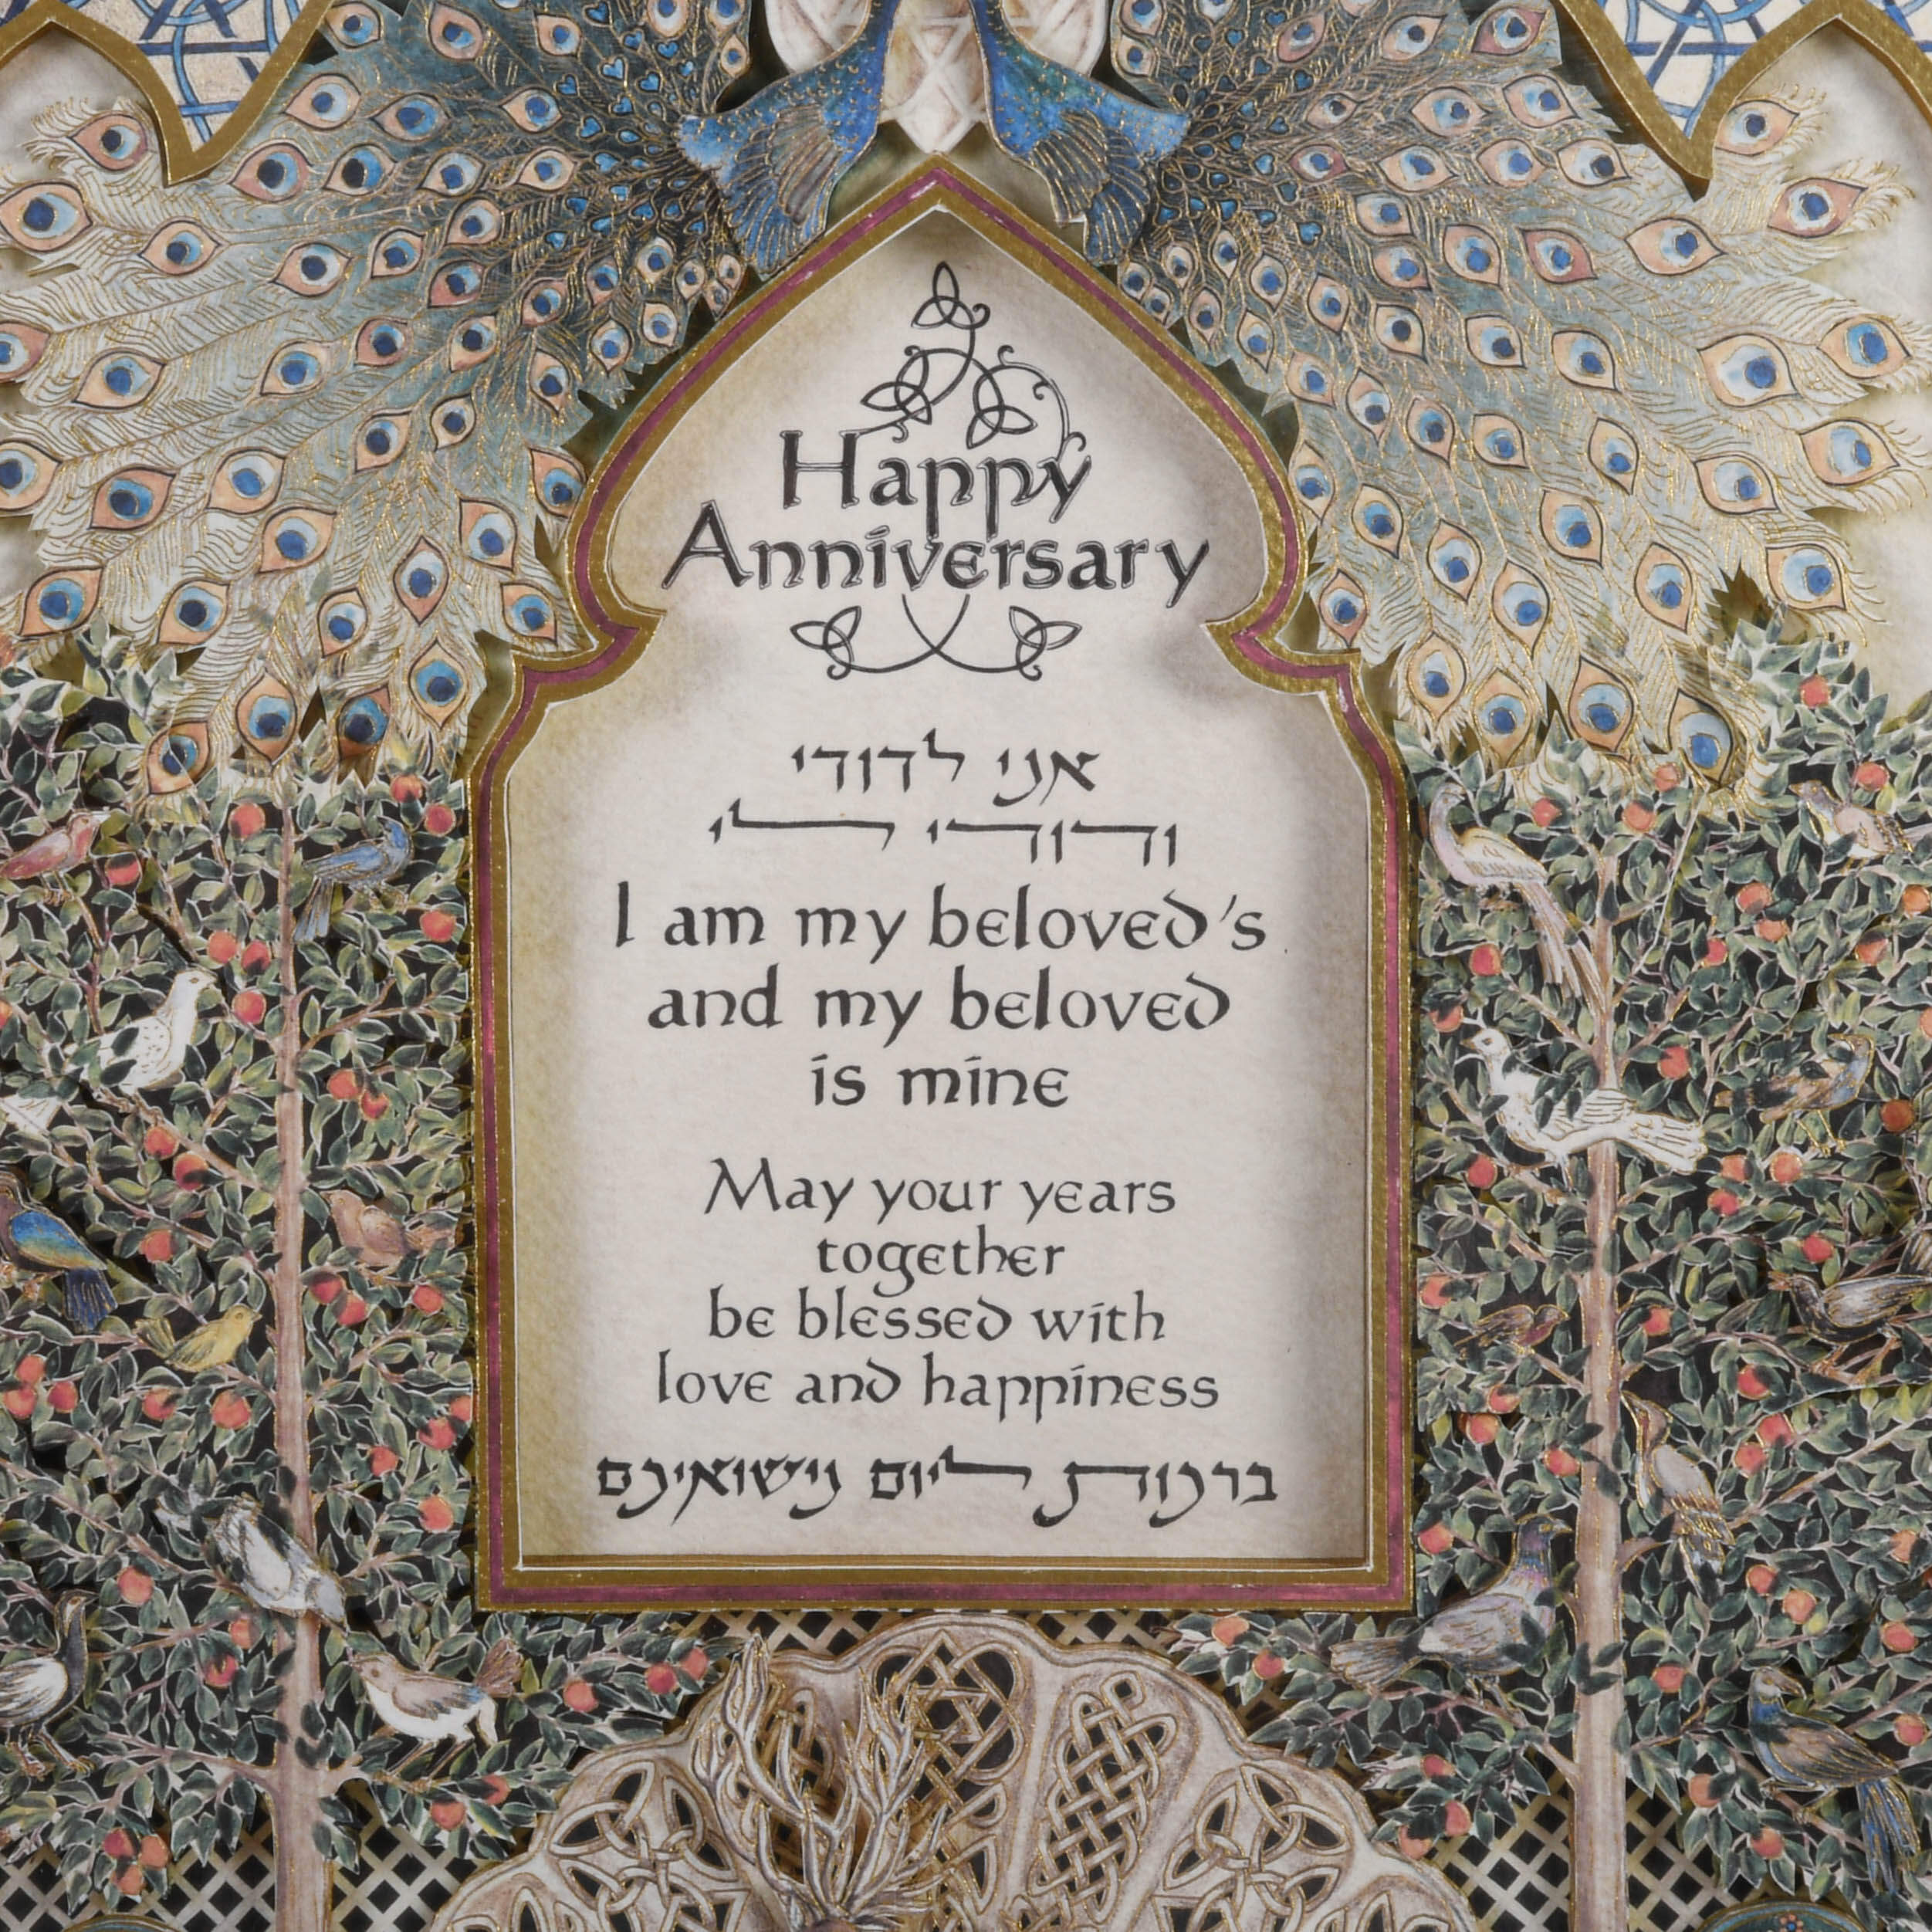 Happy
Anniversary
אני לדודי
ודודי לי
I am my beloved's
and my beloved
is mine
May your years
together
be blessed with
love and happiness
ברכות ליום נישואיכם